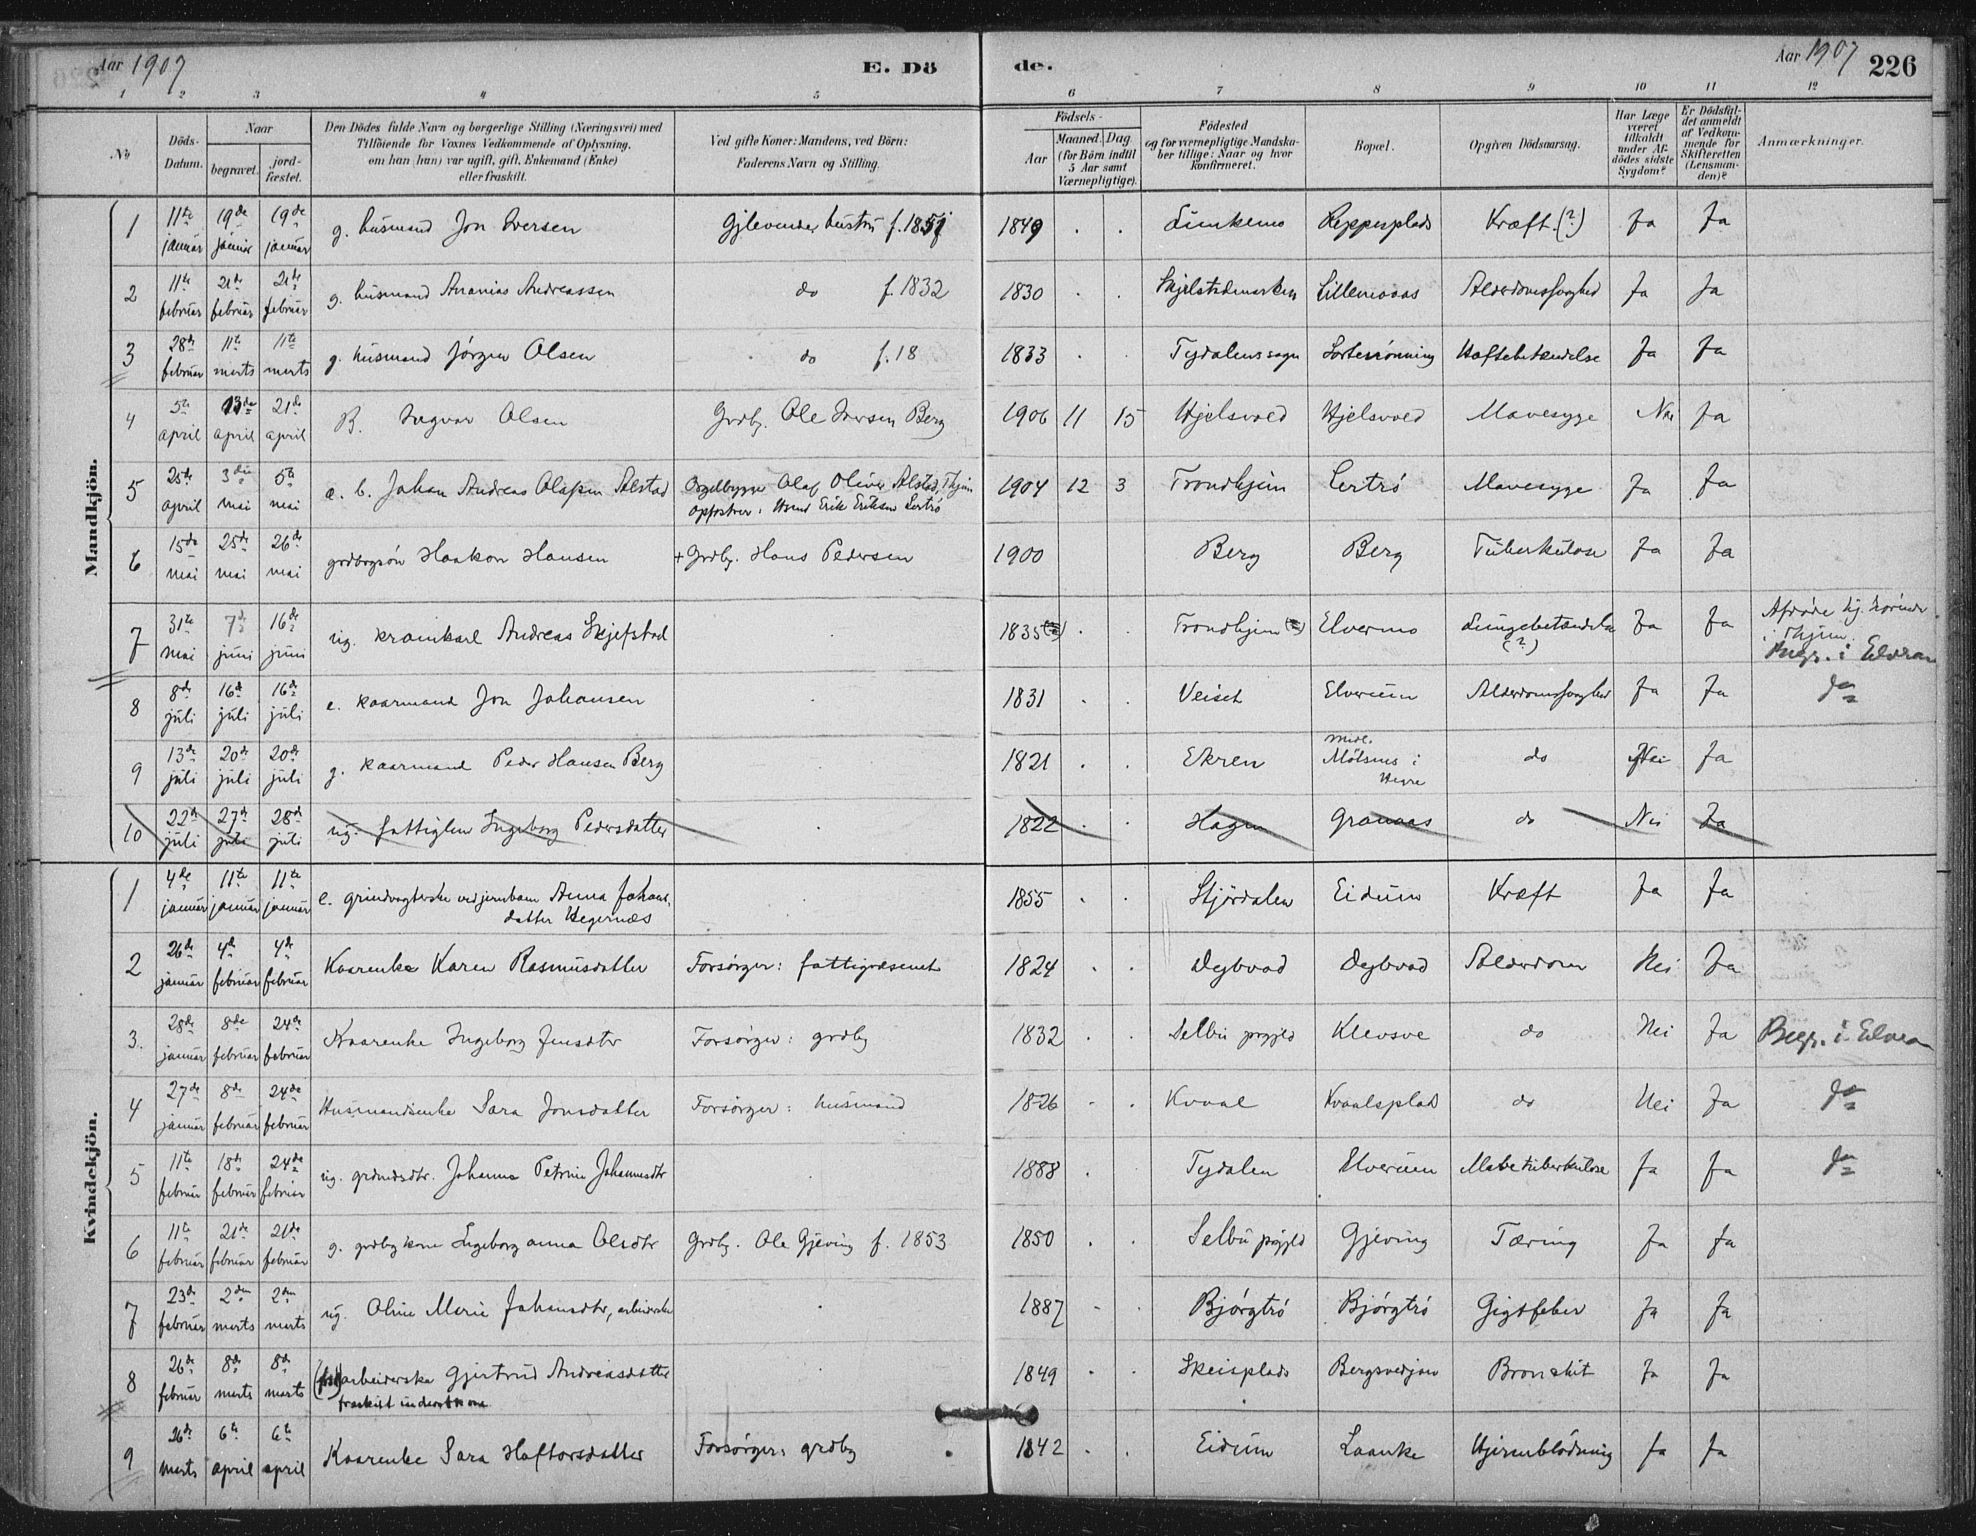 Aar 1907 E. Dö de. Aar 1907 226
1 2 3 4 5 6 7 8 9 10 11 12
No Döds-Datum. Naar begravet. jord-fæstet. Den Dödes fulde Navn og borgerlige Stilling (Næringsvei) med Tilföiende for Voxnes Vedkommende af Oplysning, om han (hun) var ugift, gift, Enkemand (Enke) eller fraskilt. Ved gifte Koner: Mandens, ved Börn: Faderens Navn og Stilling. Födsels- Aar Maaned. Dag (for Börn indtil 5 Aar samt Værnepligtige). Födested og for værnepligtige Mandska-ber tillige: Naar og hvor konfirmeret. Bopæl. Opgiven Dödsaarsag. Har Læge været tilkaldt under Af-dödes sidste Sygdom? Er Dödsfal-det anmeldt af Vedkom-mende for Skifteretten (Lensman-den)? Anmærkninger.
Mandkjön.
1 11te januar 19de januar 19de januar g. husmand Jon Iversen Gjlevender hustru f. 1851 1849 Reppesplads Kræft (?) Ja Ja
2 11te februar 21de februar 21de februar g. husmand Ananias Andreassen do f. 1832 1830 Skjelstadmarken Lillemoaas Alderdomssvaghed Ja Ja
3 28de februar 11te marts 11te marts g. husmand Jörgen Olsen do f. 18 1833 Tydalens sogn Sorterönning Hoftebetændelse Ja Ja
4 5te april 13de april 21de april B. Ingvar Olsen Grdbr. Ole Iversen Berg 1906 11 15 Hjelsvold Hjelsvold Mavesyge Nei Ja
5 25de april 3die mai 5te mai æ. b. Johan Andreas Olafsen Alstad Orgelbygger Olaf Oliver Alstad, Thjem
opfostrer: Hsmd Erik Eriksen Lertrö 1904 12 3 Trondhjem Lertrö Mavesyge Ja Ja
6 15de mai 25de mai 26de mai grdbrgsön Haakon Hansen + Grdbr. Hans Pedersen 1900 Berg Berg Tuberkulose Ja Ja
7 31te mai 7de juni 16de juni ug. kramkarl Andreas Skjefstad 1835 (?) Trondhjem (?) Elvermo Lungebetændelse (?) Ja Ja Afdöde hj. hörende i Thjem. Begr. i Elvran
8 8de juli 16de juli 16de juli e. kaarmand Jon Johansen 1831 Veiset Elverum Alderdomssvaghed Ja Ja do
9 13de juli 20de juli 20de juli g. kaarmand Peder Hansen Berg 1821 Ekren midl. Mölsmes i Hegre do Nei Ja
10 22de juli 27de juli 28de juli ug. fattiglem Ingeborg Pedersdatter 1822 Hagen Granaas do Nei Ja
Kvindekjön.
1 4de januar 11te januar 11te januar e. grindvogterske ved jernbanen Anna Johans-
datter Hegernæs 1855 Stjördalen Eidum Kræft Ja Ja
2 26de januar 4de februar 4de februar Kaarenke Karen Rasmusdatter Forsörger: fattigvæsenet 1824 Dybvad Dybvad Alderdom Nei Ja
3. 28de januar 8de februar 24de februar Kaarenke Ingeborg Jensdtr Forsörger: grdbr 1832 Selbu prgjeld Klevsve do Nei Ja Begr. i Elvran
4 27de januar 8de februar 24de februar Husmandsenke Sara Jonsdatter Forsörger: husmand 1826 Kvaal Kvaalsplads do Nei Ja do
5 11te februar 18de februar 24de februar ug. grdmdsdtr. Johanna Petrine Johannesdtr 1888 Tydalen Elverum Mavetuberkulose Ja Ja do
6 11te februar 21de februar 21de februar g. grdbrkone Ingeborganna Olsdtr Grdbr. Ole Gjeving f. 1853 1850 Selbu prgjeld Gjeving Tæring Ja Ja
7 23de februar 2den marts 2den marts ug. Oline Marie Johansdtr, arbeiderske 1887 Björgtrö Björgtrö Gigtfeber Ja Ja
8 26de februar 8de marts 8de marts arbeiderske Gjertrud Andreasdatter
fraskilt 1849 Skeisplads Bronchit Ja Ja
9 26de marts 6te april 6te april Kaarenke Sara Haftorsdatter Forsörger: grdbr 1842 Eidum Laanke Hjerneblödning Ja Ja